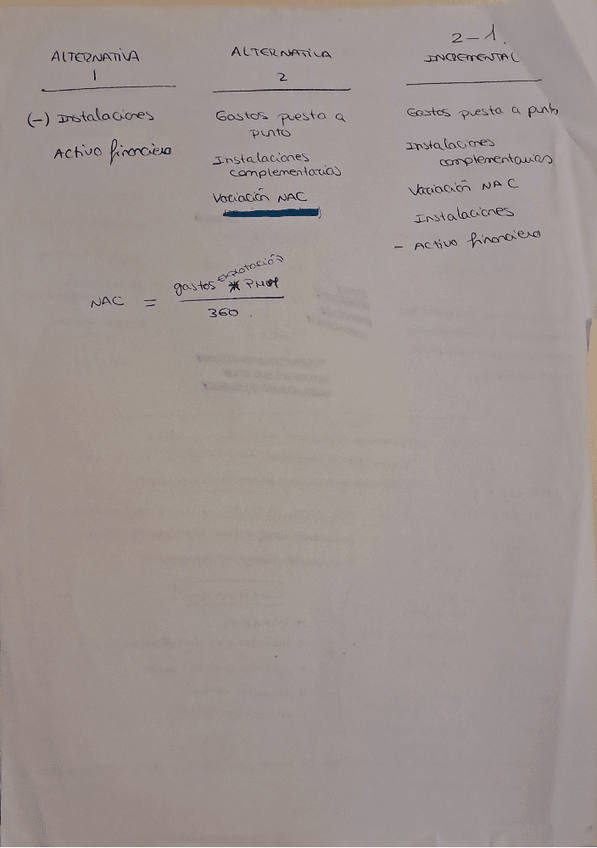 ALTERNATIVA
1
(-) Instalaciones
Activo financiero
ALTERNATIVA
2
Gastos puesta a
punto
Instalaciones
complementarias
Variación NAC
2-1.
INCREMENTAL
Gastos puesta a punto
Instalaciones
complementarias
Variación NAC
Instalaciones
- Activo financiero
NAC = gastos explotación * PMM
360.